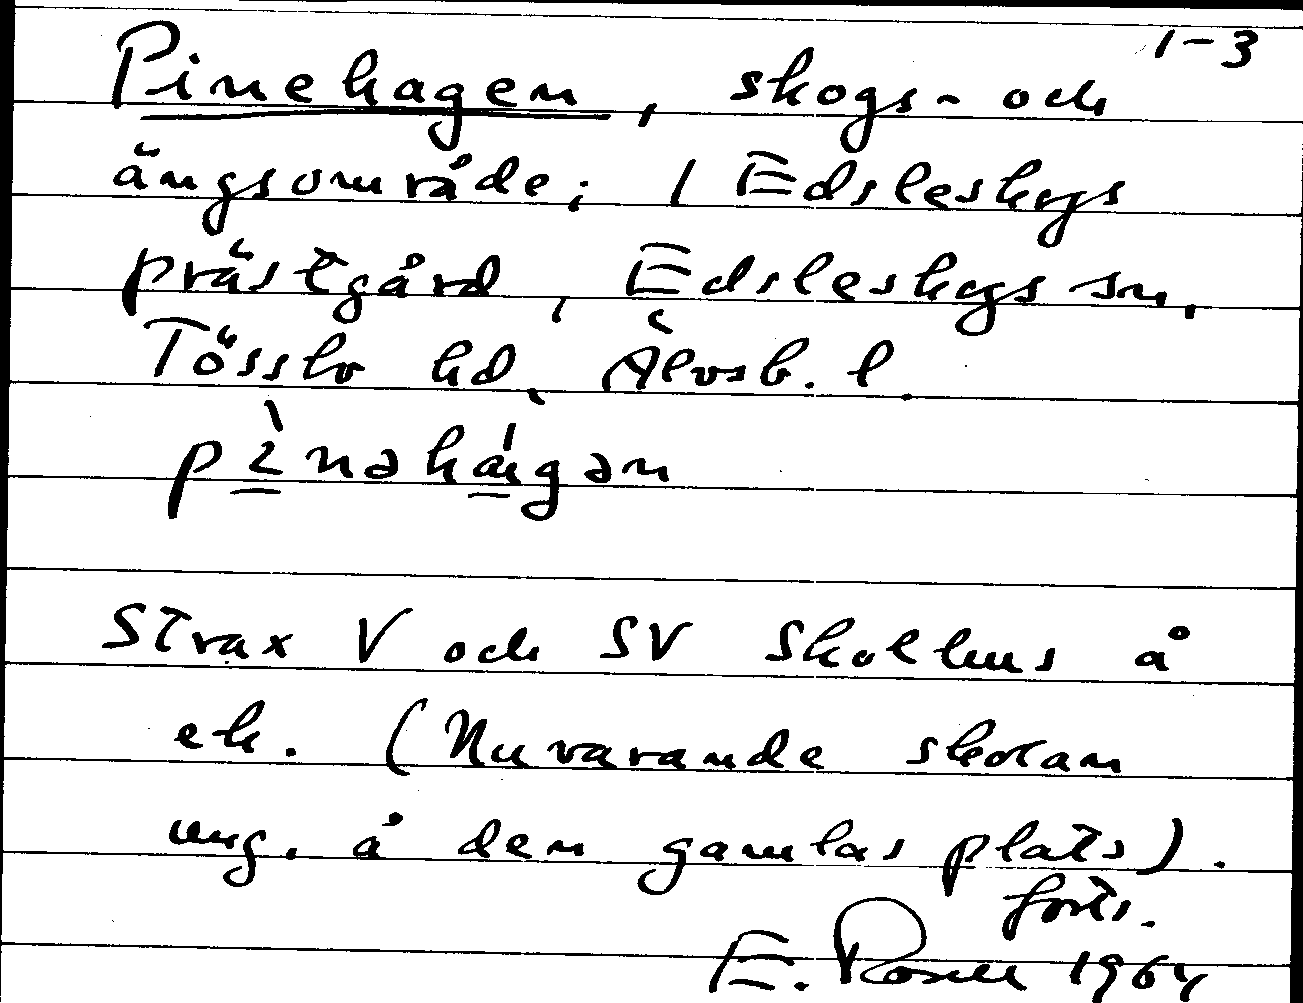 1-3
Pinehagen, skogs- och
ängsområde, / Edsleskogs
prästgård, Edsleskogs sn,
Tössbo hd, Älvsb. l.
pìnəhágən
Strax V och SV Skolhus å
ek. (Nuvarande skolan
ung. å den gamlas plats).
forts.
E. Rosell 1964